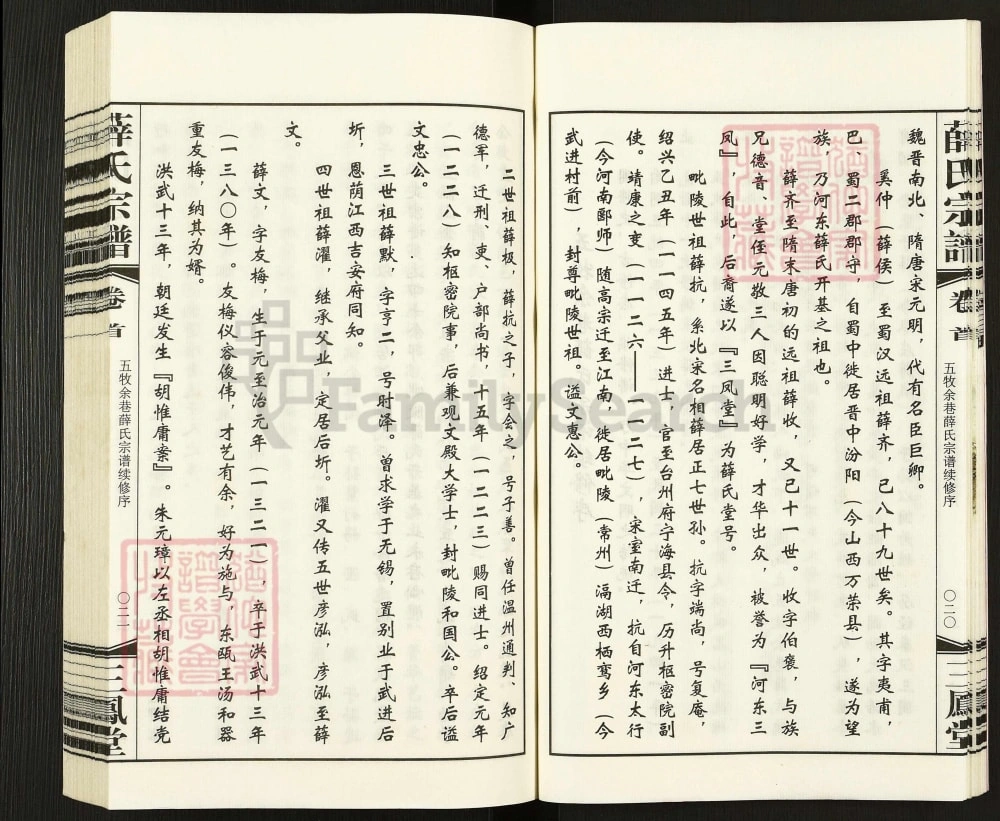 薛氏宗譜
卷首
五牧余巷薛氏宗谱续修序
〇二〇
三鳳堂
魏晋南北、隋唐宋元明，代有名臣巨卿。
奚仲（薛侯）至蜀汉远祖薛齐，已八十九世矣。其字夷甫，
巴、蜀二郡郡守，自蜀中徙居晋中汾阴（今山西万荣县），遂为望
族，乃河东薛氏开基之祖也。
薛齐至隋末唐初的远祖薛收，又已十一世。收字伯褒，与族
兄德音、堂侄元敬三人因聪明好学，才华出众，被誉为『河东三
凤』，自此，后裔遂以『三凤堂』为薛氏堂号。
毗陵世祖薛抗，系北宋名相薛居正七世孙。抗字端尚，号复庵，
绍兴乙丑年（一一四五年）进士，官至台州府宁海县令，历升枢密院副
使。靖康之变（一一二六——一一二七），宋室南迁，抗自河东太行
（今河南郾师）随高宗迁至江南，徙居毗陵（常州）滆湖西栖鸾乡（今
武进村前），封尊毗陵世祖。谥文惠公。
二世祖薛极，薛抗之子，字会之，号子善。曾任温州通判、知广
德军，迁刑吏、户部尚书，十五年（一二二三）赐同进士。绍定元年
（一二二八）知枢密院事，后兼观文殿大学士，封毗陵和国公。卒后谥
文忠公。
三世祖薛默，字亨二，号时泽。曾求学于无锡，置别业于武进后
圻，恩荫江西吉安府同知。
四世祖薛濯，继承父业，定居后圻。濯又传五世彦泓，彦泓至薛
文。
薛文，字友梅，生于元至治元年（一三二一），卒于洪武十三年
（一三八〇年）。友梅仪容俊伟，才艺有余，好为施与，东瓯王汤和器
重友梅，纳其为婿。
洪武十三年，朝廷发生『胡惟庸案』。朱元璋以左丞相胡惟庸结党
薛氏宗譜
卷首
五牧余巷薛氏宗谱续修序
〇二一
三鳳堂
FamilySearch